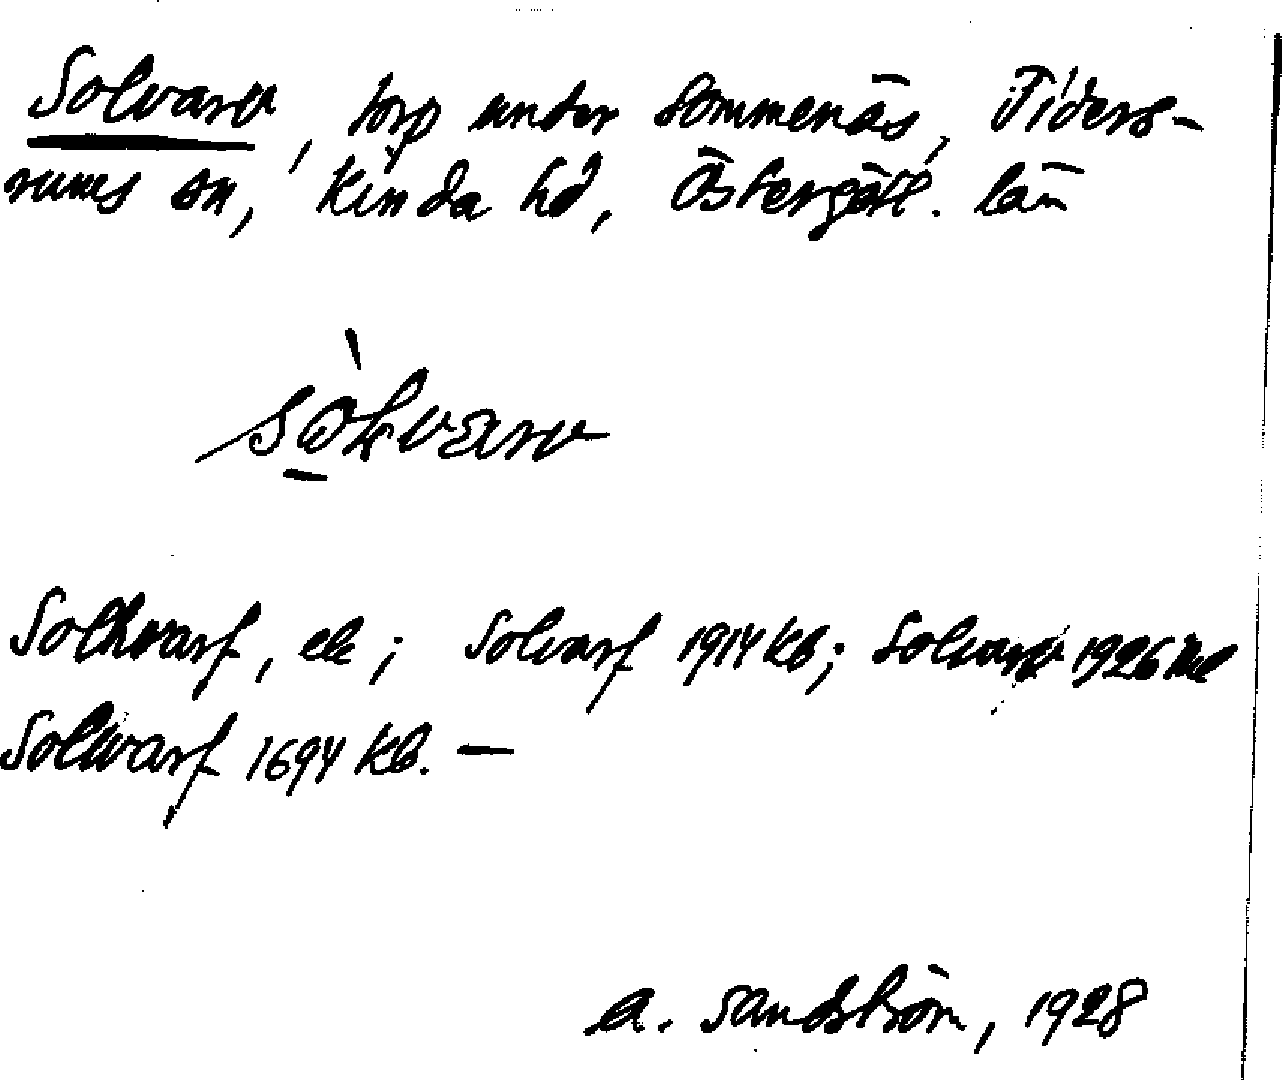 Solvarv, torp under Sommenäs, Tiders-
rums sn, Kinda hd, Östergötl. län
Solhvarf, ek; Solvarf 1914 Kb; Solvarv 1926
Solwarf 1694 Kb. —
A. Sandström, 1928